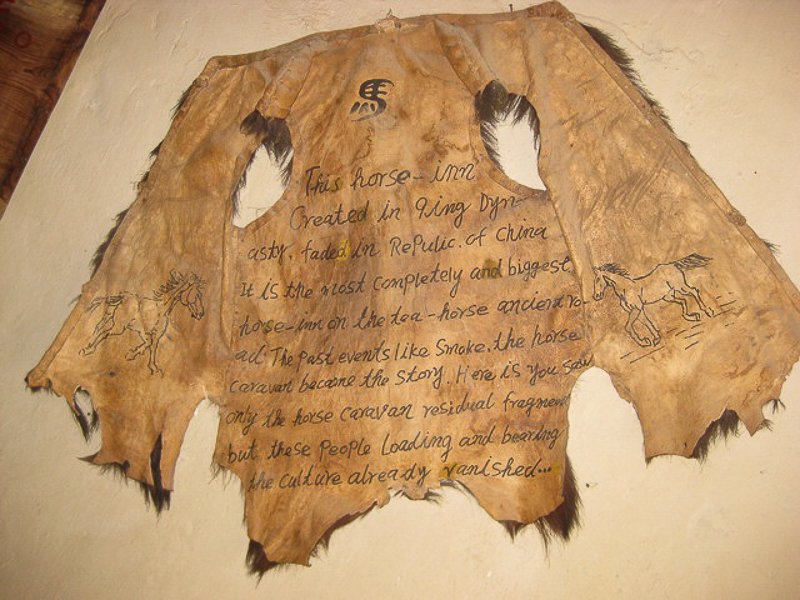 This horse-inn
Created in Qing Dyn-
asty. faded in RePulic. of China
It is the most Completely and biggest
horse-inn on the tea-horse ancient ro-
ad. The Past events like Smoke. the horse
caravan became the Story. Here is you saw
only the horse caravan residual fragment
but these People Loading and bearing
the culture already vanished...